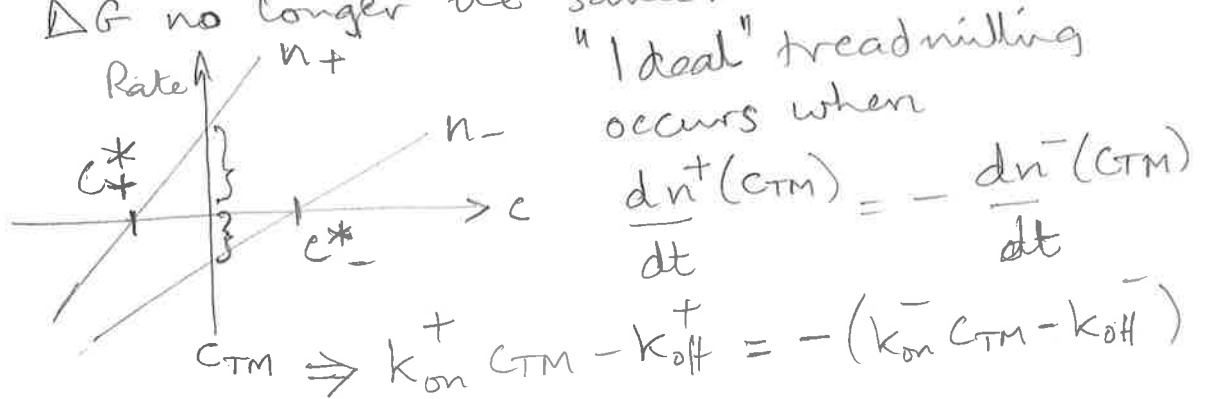 ΔG no longer the same.
Rate n+
"Ideal" treadmilling
occurs when
n-
C*+
C
C*-
dn⁺(CTM)/dt = - dn⁻(CTM)/dt
CTM ⇒ k⁺on CTM - k⁺off = -(k⁻on CTM - koff⁻)